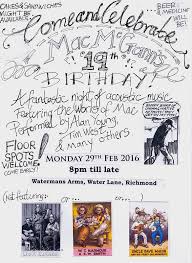 CAKES & SANDWICHES
MIGHT BE
AVAILABLE
BEER
& MEDICINE
WILL BE!
Come and Celebrate
Mac McGann's
19th
BIRTHDAY!
A fantastic night of acoustic music
Featuring the World of Mac
Performed by Alan Young,
Tim West
& many Others
FLOOR
SPOTS
WELCOME
COME EARLY!
MONDAY 29TH FEB 2016
8pm till late
Watermans Arms, Water Lane, Richmond
(Not featuring:
or ...
or ...
UNCLE DAVE MACON